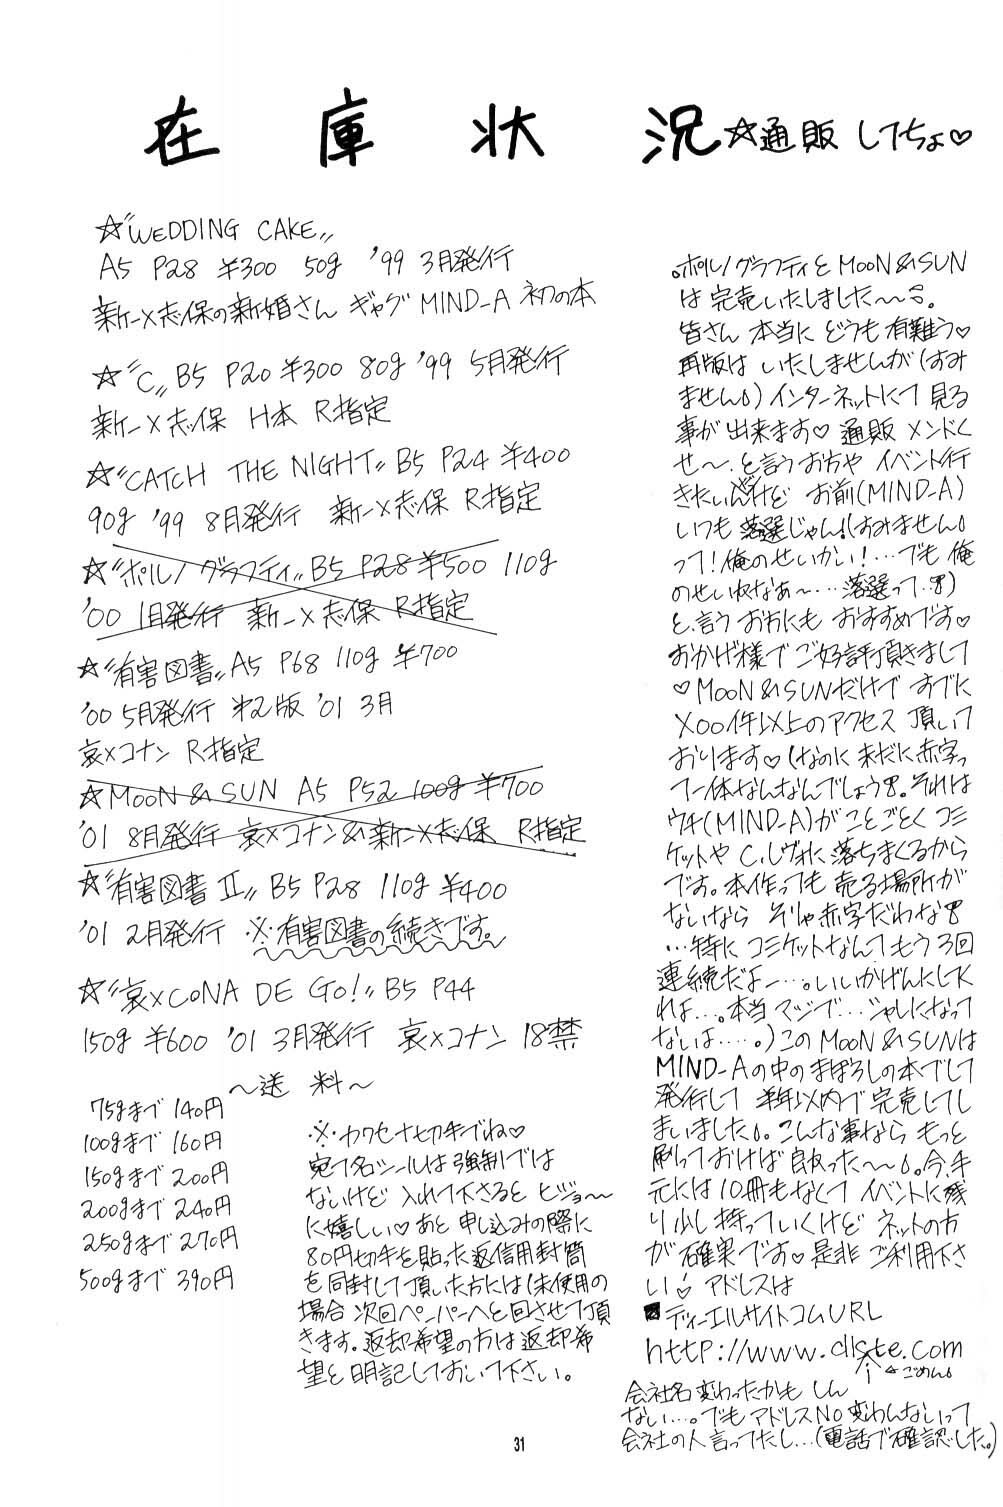 在庫状況 ☆通販 してちょ♡
☆"WEDDING CAKE"
A5 P28 ¥300 50g '99 3月発行
新一×志保の新婚さん ギャグ MIND_A 初の本
☆"C" B5 P20 ¥300 80g '99 5月発行
新一×志保 H本 R指定
☆"CATCH THE NIGHT" B5 P24 ¥400
90g '99 8月発行 新一×志保 R指定
☆"ポルノグラフティ" B5 P28 ¥500 110g
'00 1月発行 新一×志保 R指定
☆"有害図書" A5 P68 110g ¥700
'00 5月発行 オ2版 '01 3月
哀×コナン R指定
☆MOON & SUN A5 P52 100g ¥700
'01 8月発行 哀×コナン&新一×志保 R指定
☆"有害図書 II" B5 P28 110g ¥400
'01 2月発行 ※有害図書の続きです。
☆"哀×CONA DE GO!" B5 P44
150g ¥600 '01 3月発行 哀×コナン 18禁
〜送 料〜
75gまで 140円
100gまで 160円
150gまで 200円
200gまで 240円
250gまで 270円
500gまで 390円
※カワセ+切手でね♡
宛て名シールは強制では
ないけど 入れて下さると ヒジョ〜
に嬉しい♡あと 申し込みの際に
80円切手を貼った返信用封筒
を同封して頂いた方には(未使用の
場合 次回ペーパーへと回させて頂
きます。返却希望の方は返却希
望と明記しておいて下さい。
。ポルノグラフティとMOON&SUN
は 完売いたしました〜。
皆さん 本当に どうも 有難う♡
再版は いたしませんが(すみ
ません)インターネットにて 見る
事が 出来ます♡ 通販 メンドく
せ〜.と言うお方や イベント行
きたいんだけど お前(MIND_A)
いつも 落選じゃん!(すみません
って!俺のせいかい!…でも 俺
のせいねなぁ〜…落選って‥)
と、言う お方にも おすすめです♡
おかげ様で ご好評頂きまして
♡MOON&SUNだけで すでに
×00件以上のアクセス 頂いて
おります♡(なのに 未だに赤字っ
て一体なんなんでしょう。それは
ウチ(MIND_A)が ことごとく コミ
ケットや C.レヴォに 落ちまくるから
です。本作っても 売る場所が
ないなら そりゃ赤字だわな
…特に コミケットなんて もう 3回
連続だよー…。いいかげんにしてく
れよ…。本当 マジで…シャレになって
ないよ……。)このMOON&SUNは
MIND_Aの中の まぼろしの本でして
発行して 半年以内で 完売してし
まいました。こんな事なら もっと
刷っておけば 良かった〜。今、手
元には10冊もなくて イベントに残
り少し 持っていくけど ネットの方
が 確実です♡ 是非 ご利用下さ
い♡ アドレスは
■ディーエルサイトコムURL
http://www.dlsite.com
←ごめん
会社名 変わったかも しん
ない…。でも アドレスNO 変わんないって
会社の人 言ってたし…(電話で確認した。)
31